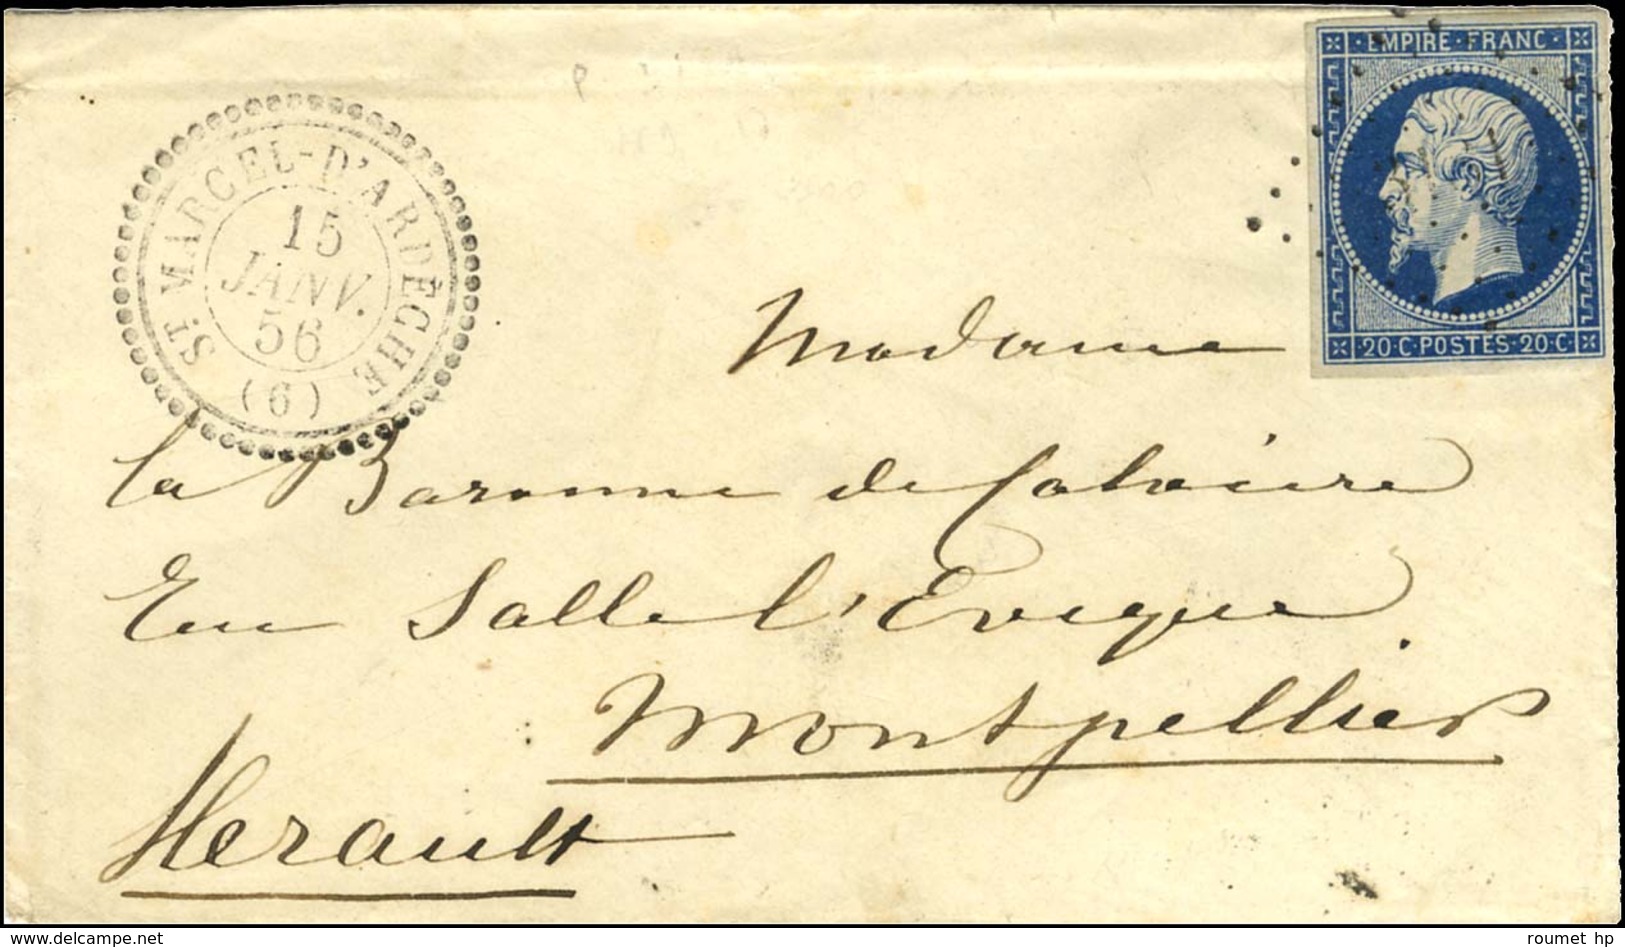 EMPIRE·FRANC·
20·C·POSTES·20·C·
ST. MARCEL-D'ARDÈCHE
15
JANV.
56
(6)
Madame
la Baronne de Calvière
Rue Salle l'Evêque
Montpellier
Herault
delcampe.net
roumet hp